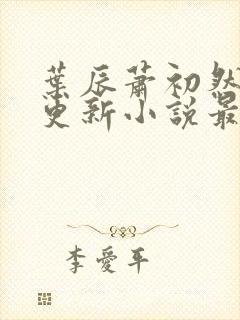 葉辰蕭初然
更新小說最
李愛平